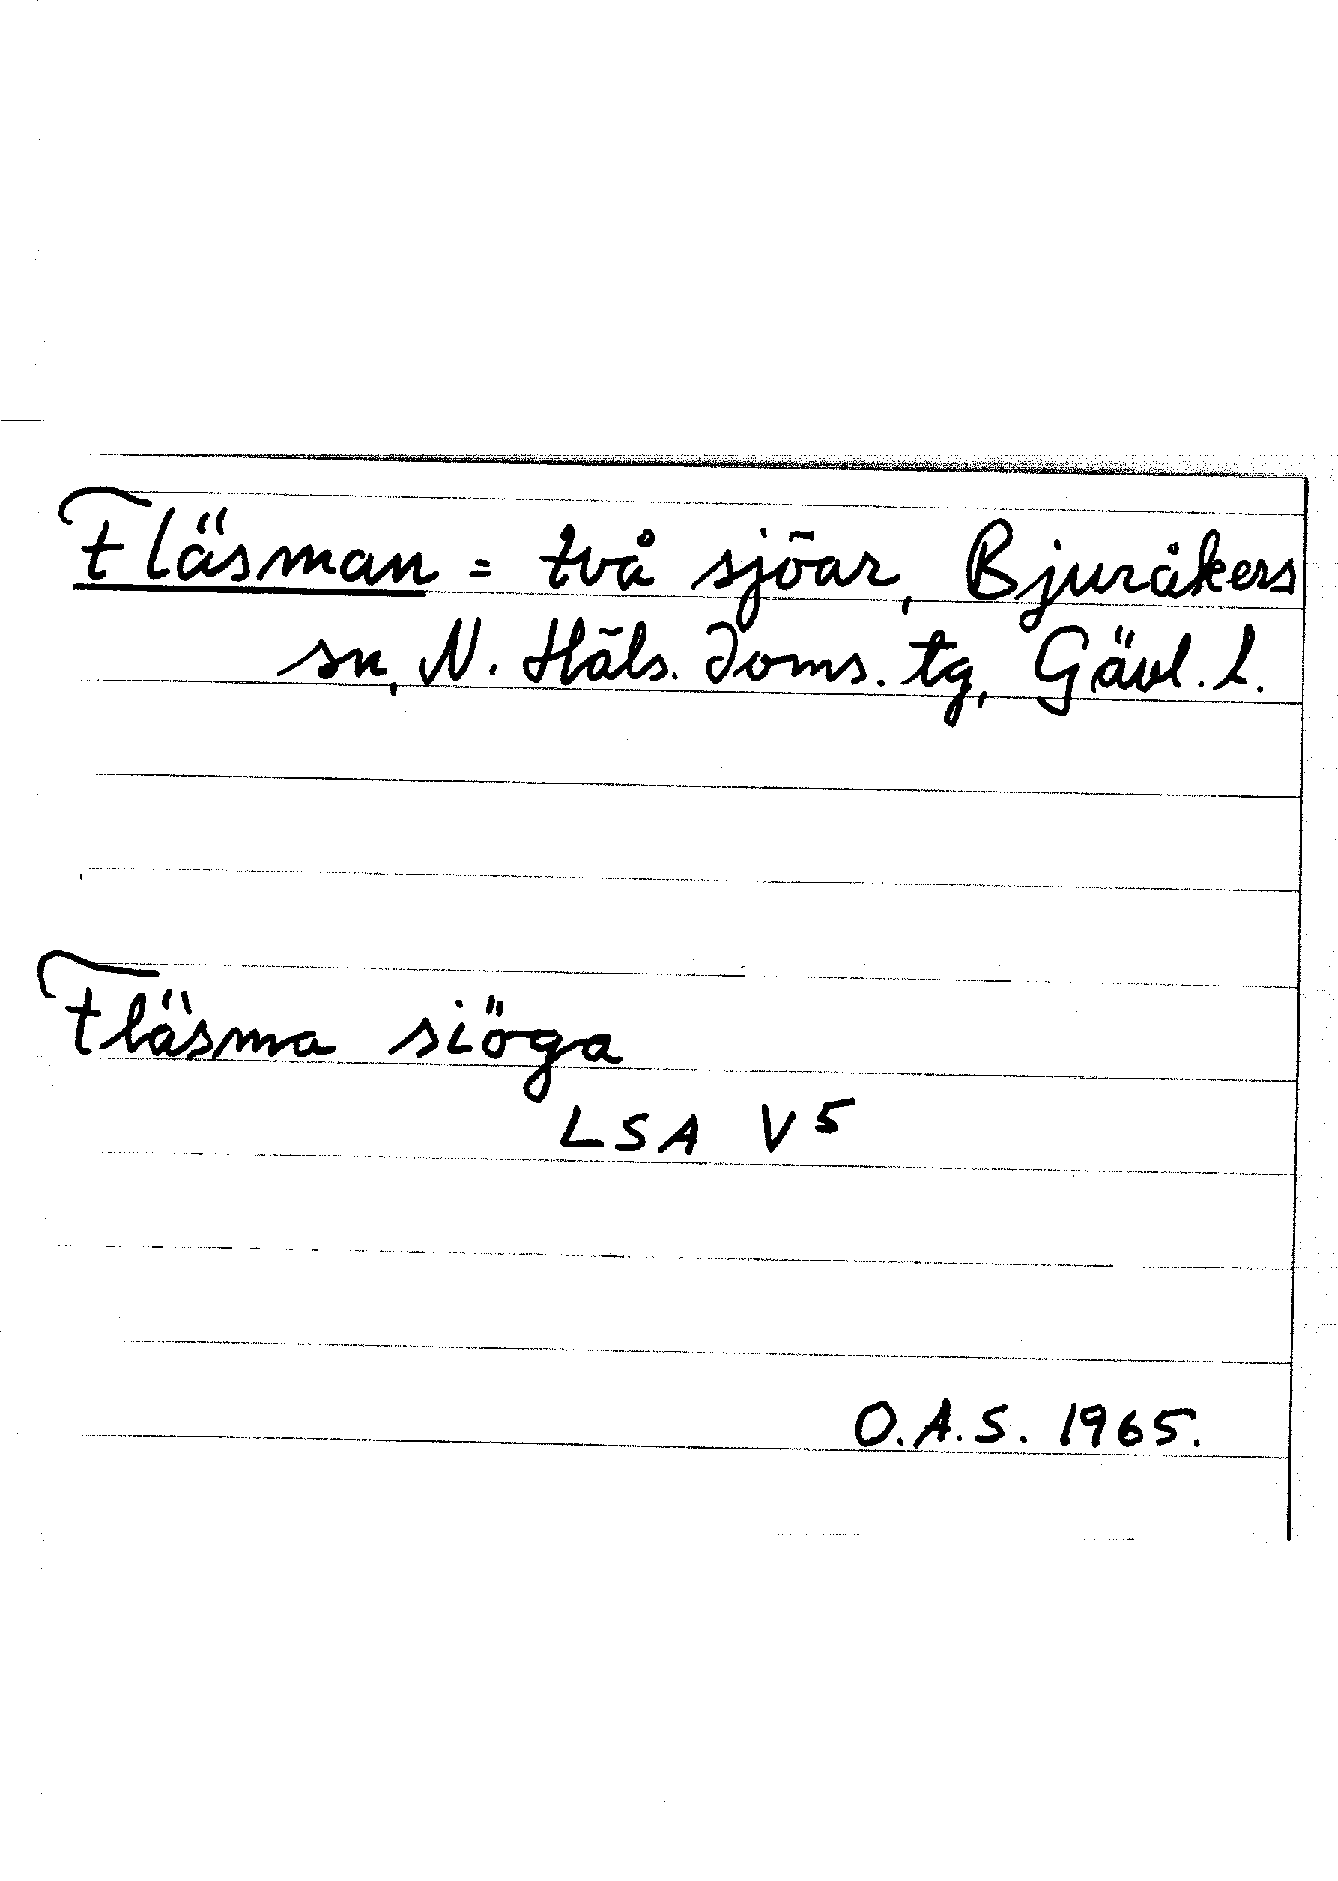 Fläsman = två sjöar, Bjuråkers
sn, N. Häls. Doms. tg, Gävl. l.
Fläsma siöga
LSA V 5
O.A.S. 1965.